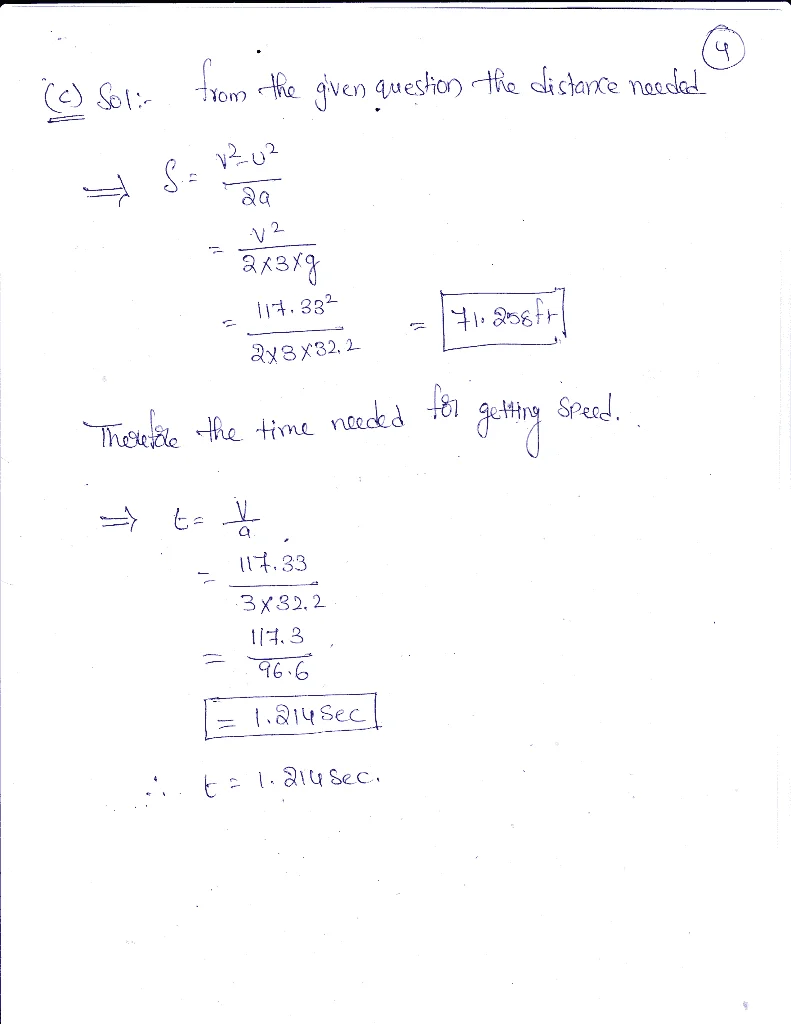 4
(c) Sol:- from the given question the distance needed
⇒ S = v²-u² / 2a
= v² / 2×3×g
= 117.33² / 2×3×32.2 = 71.258ft
Therefore the time needed for getting speed.
⇒ t = v / a
= 117.33 / 3×32.2
= 117.3 / 96.6
= 1.214 Sec
∴ t = 1.214 Sec.